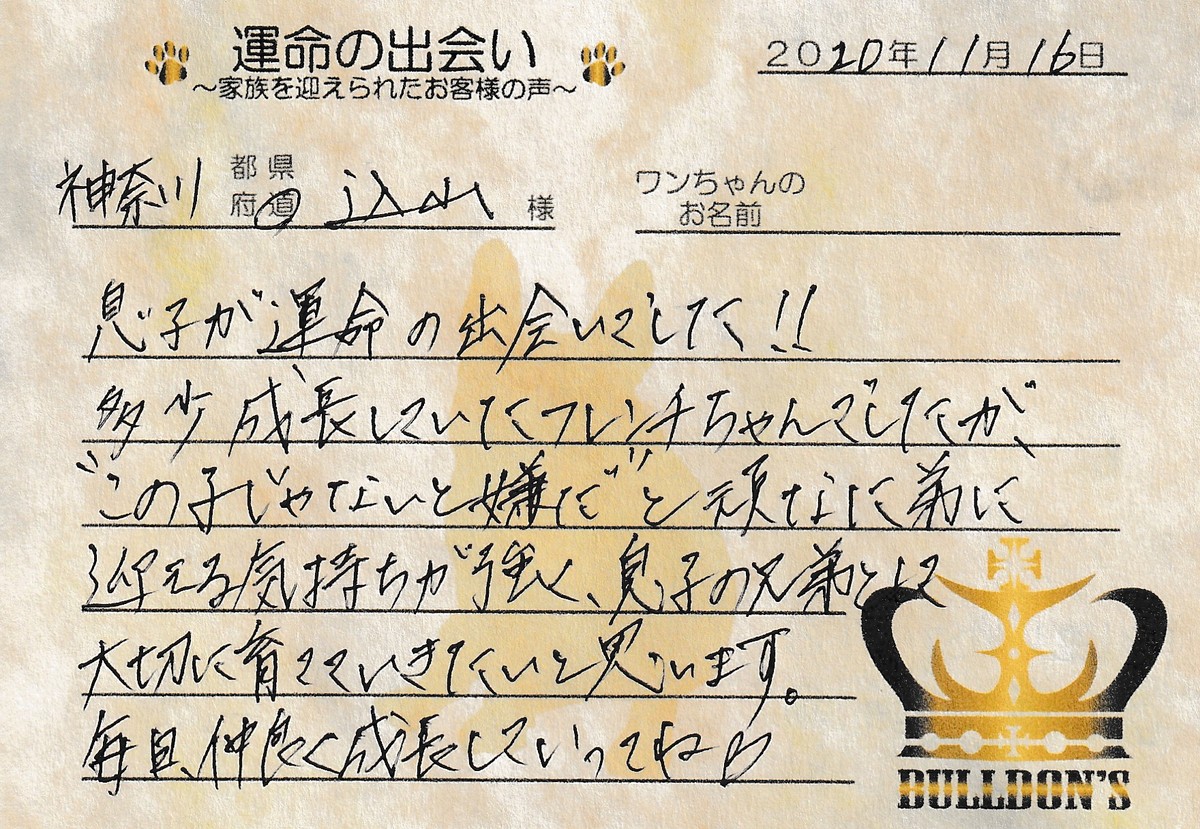 運命の出会い
～家族を迎えられたお客様の声～
2020年11月16日
神奈川 都県府道 込山 様
ワンちゃんのお名前
息子が運命の出会いでした!!
多少成長していたフレンチちゃんでしたが、
"この子じゃないと嫌だ"と頑なに弟に
迎える気持ちが強く、息子の兄弟として
大切に育てていきたいと思います。
毎日、仲良く成長していってね♡
BULLDON'S